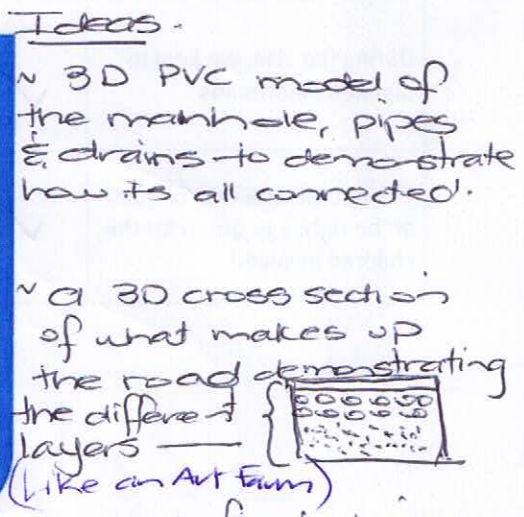 Ideas.
~ 3D PVC model of
the manhole, pipes
& drains to demonstrate
how its all connected.
~ a 3D cross section
of what makes up
the road demonstrating
the different
layers
(Like an Ant Farm)